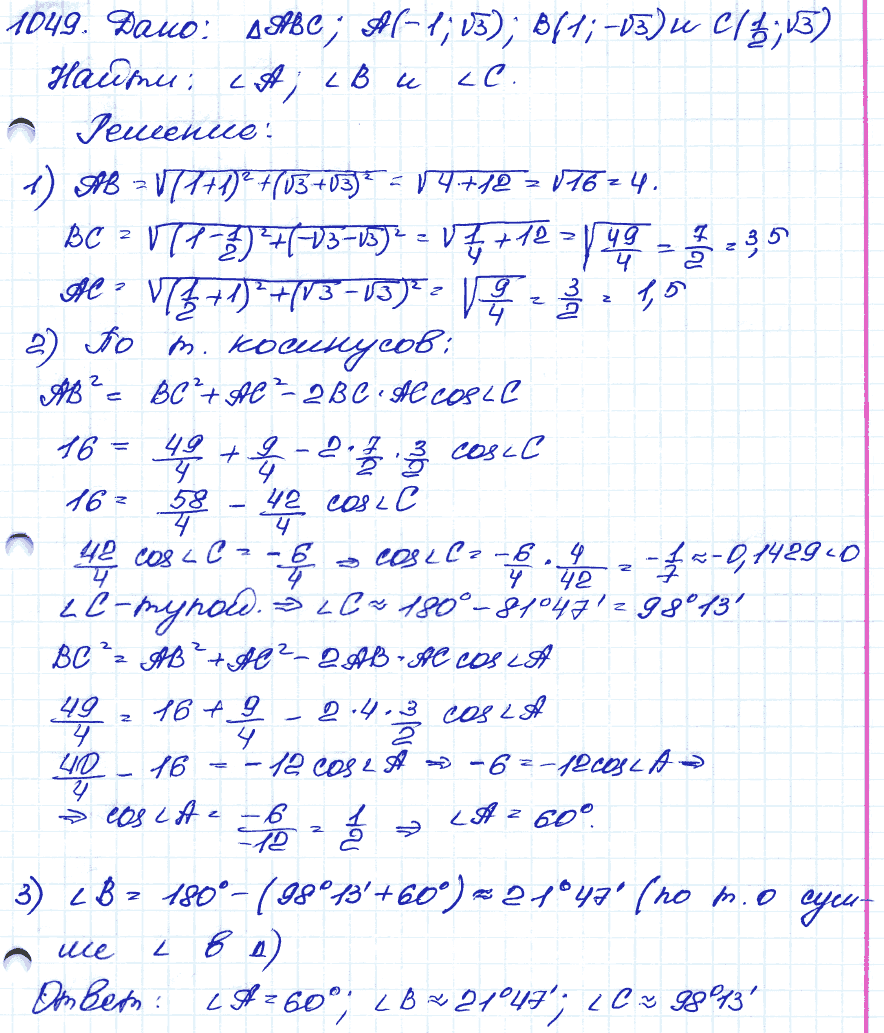 1049. Дано: △ABC; A(-1; √3); B(1; -√3) и C(1/2; √3)
Найти: ∠A; ∠B и ∠C.
Решение:
1) AB = √((1+1)² + (√3+√3)²) = √(4+12) = √16 = 4.
BC = √((1-1/2)² + (-√3-√3)²) = √(1/4 + 12) = √(49/4) = 7/2 = 3,5
AC = √((1/2+1)² + (√3-√3)²) = √(9/4) = 3/2 = 1,5
2) По т. косинусов:
AB² = BC² + AC² - 2BC·AC cos∠C
16 = 49/4 + 9/4 - 2·7/2·3/2 cos∠C
16 = 58/4 - 42/4 cos∠C
42/4 cos∠C = -6/4 ⇒ cos∠C = -6/4 · 4/42 = -1/7 ≈ -0,1429 < 0
∠C - тупой. ⇒ ∠C ≈ 180° - 81°47' = 98°13'
BC² = AB² + AC² - 2AB·AC cos∠A
49/4 = 16 + 9/4 - 2·4·3/2 cos∠A
40/4 - 16 = -12cos∠A ⇒ -6 = -12cos∠A ⇒
⇒ cos∠A = -6/-12 = 1/2 ⇒ ∠A = 60°.
3) ∠B = 180° - (98°13' + 60°) ≈ 21°47' (по т. о сум-
ме ∠ в △)
Ответ: ∠A = 60°; ∠B ≈ 21°47'; ∠C ≈ 98°13'